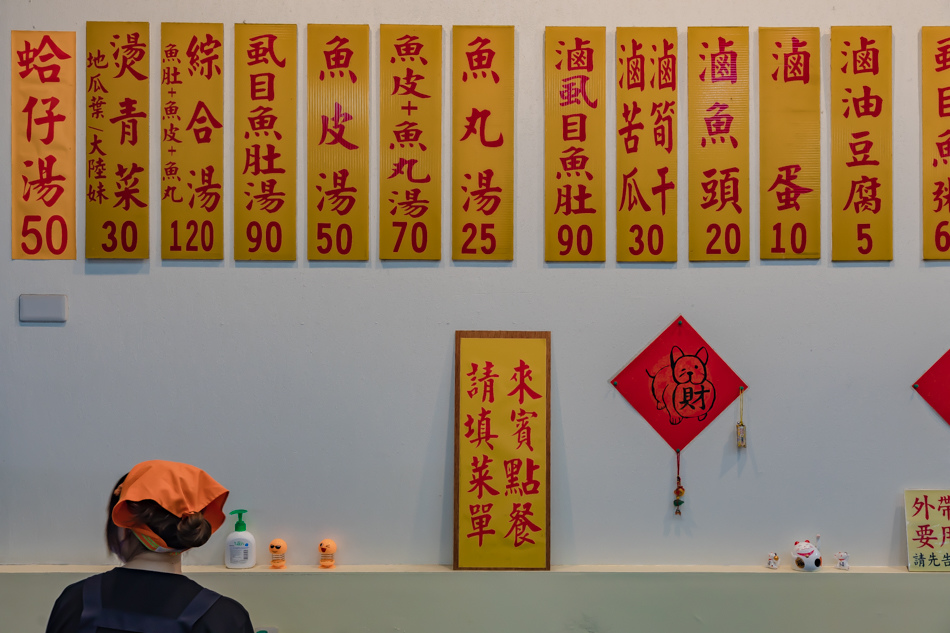 蛤仔湯
50
燙青菜
地瓜葉/大陸妹
30
綜合湯
魚肚+魚皮+魚丸
120
虱目魚肚湯
90
魚皮湯
50
魚皮+魚丸湯
70
魚丸湯
25
滷虱目魚肚
90
滷筍干
滷苦瓜
30
滷魚頭
20
滷蛋
10
滷油豆腐
5
來賓點餐
請填菜單
財
外帶
要
請先告